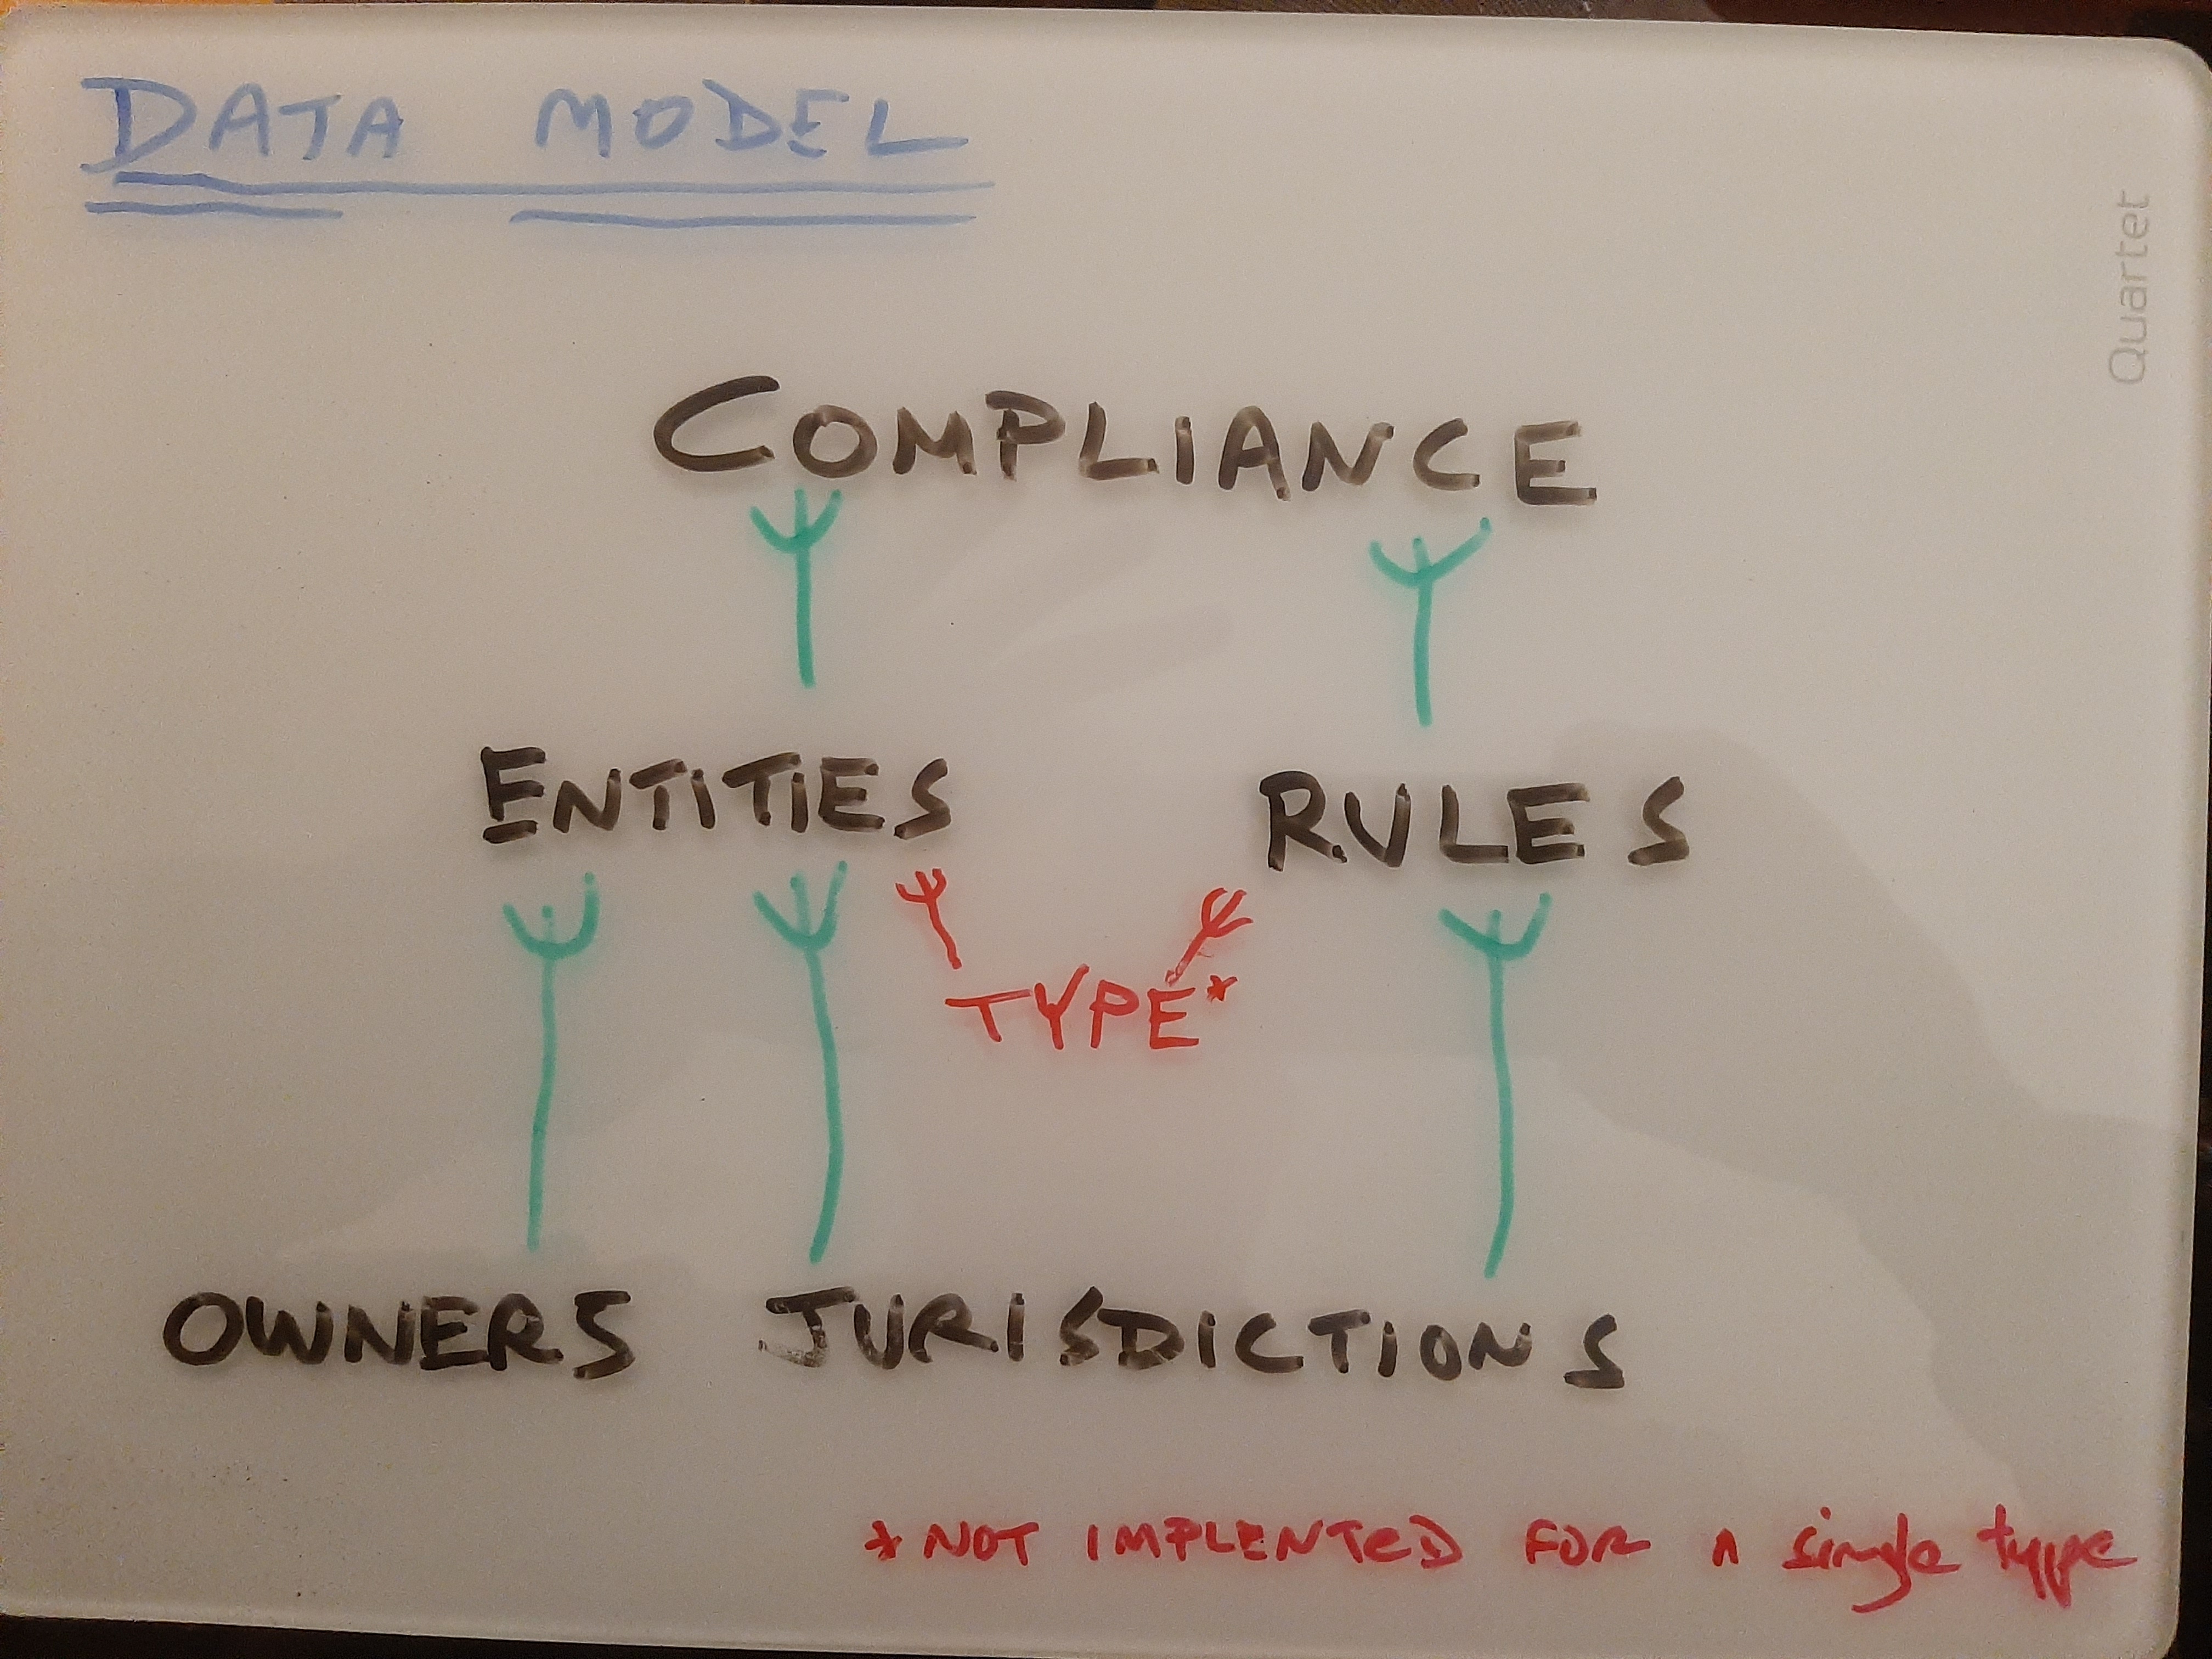 DATA MODEL
Quartet
COMPLIANCE
ENTITIES RULES
TYPE*
OWNERS JURISDICTIONS
*NOT IMPLENTED FOR A single type